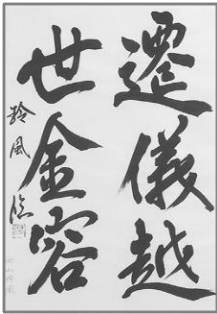 遷儀越
世金容
玲風臨